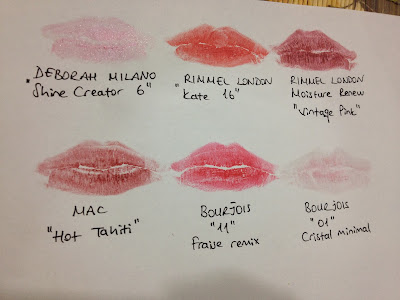 DEBORAH MILANO
"Shine Creator 6"
RIMMEL LONDON
"Kate 16"
RIMMEL LONDON
Moisture Renew
"Vintage Pink"
MAC
"Hot Tahiti"
BOURJOIS
"11"
Fraise remix
BOURJOIS
"01"
Cristal minimal